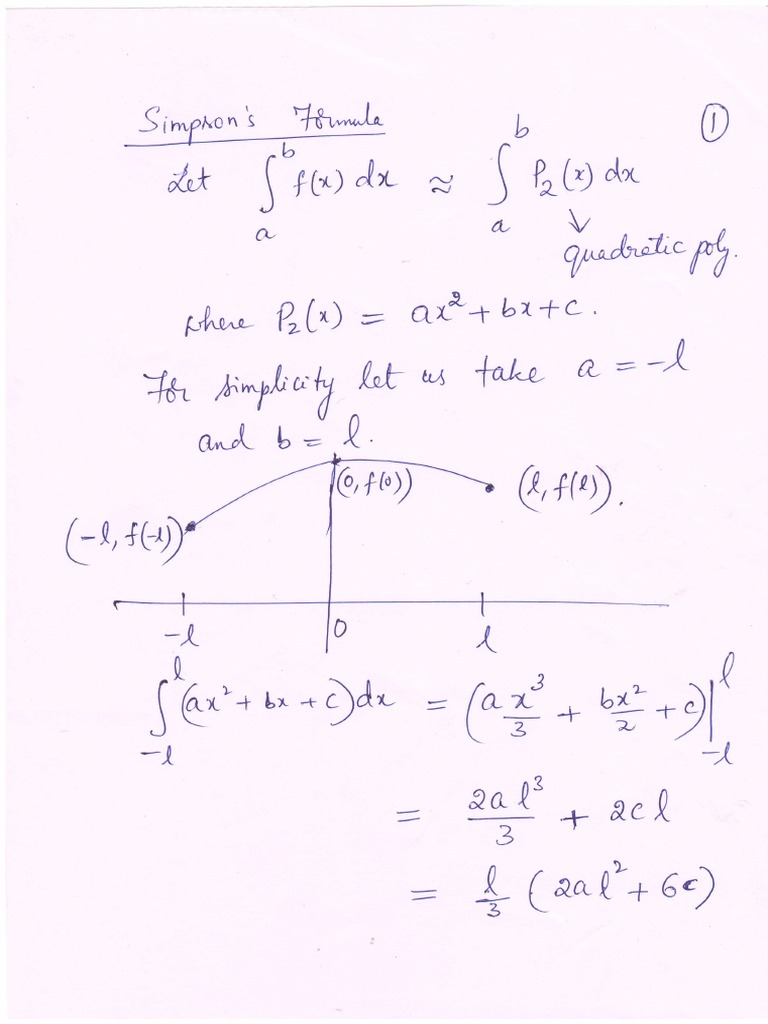 Simpson's Formula
①
Let ∫_a^b f(x) dx ≈ ∫_a^b P₂(x) dx
↓
quadratic poly.
where P₂(x) = ax² + bx + c.
For simplicity let us take a = -l
and b = l.
(0, f(0))
(l, f(l)).
(-l, f(-l))
-l 0 l
∫_{-l}^{l} (ax² + bx + c) dx = (a x³/3 + bx²/2 + c)|_{-l}^{l}
= 2al³/3 + 2cl
= l/3 (2al² + 6c)